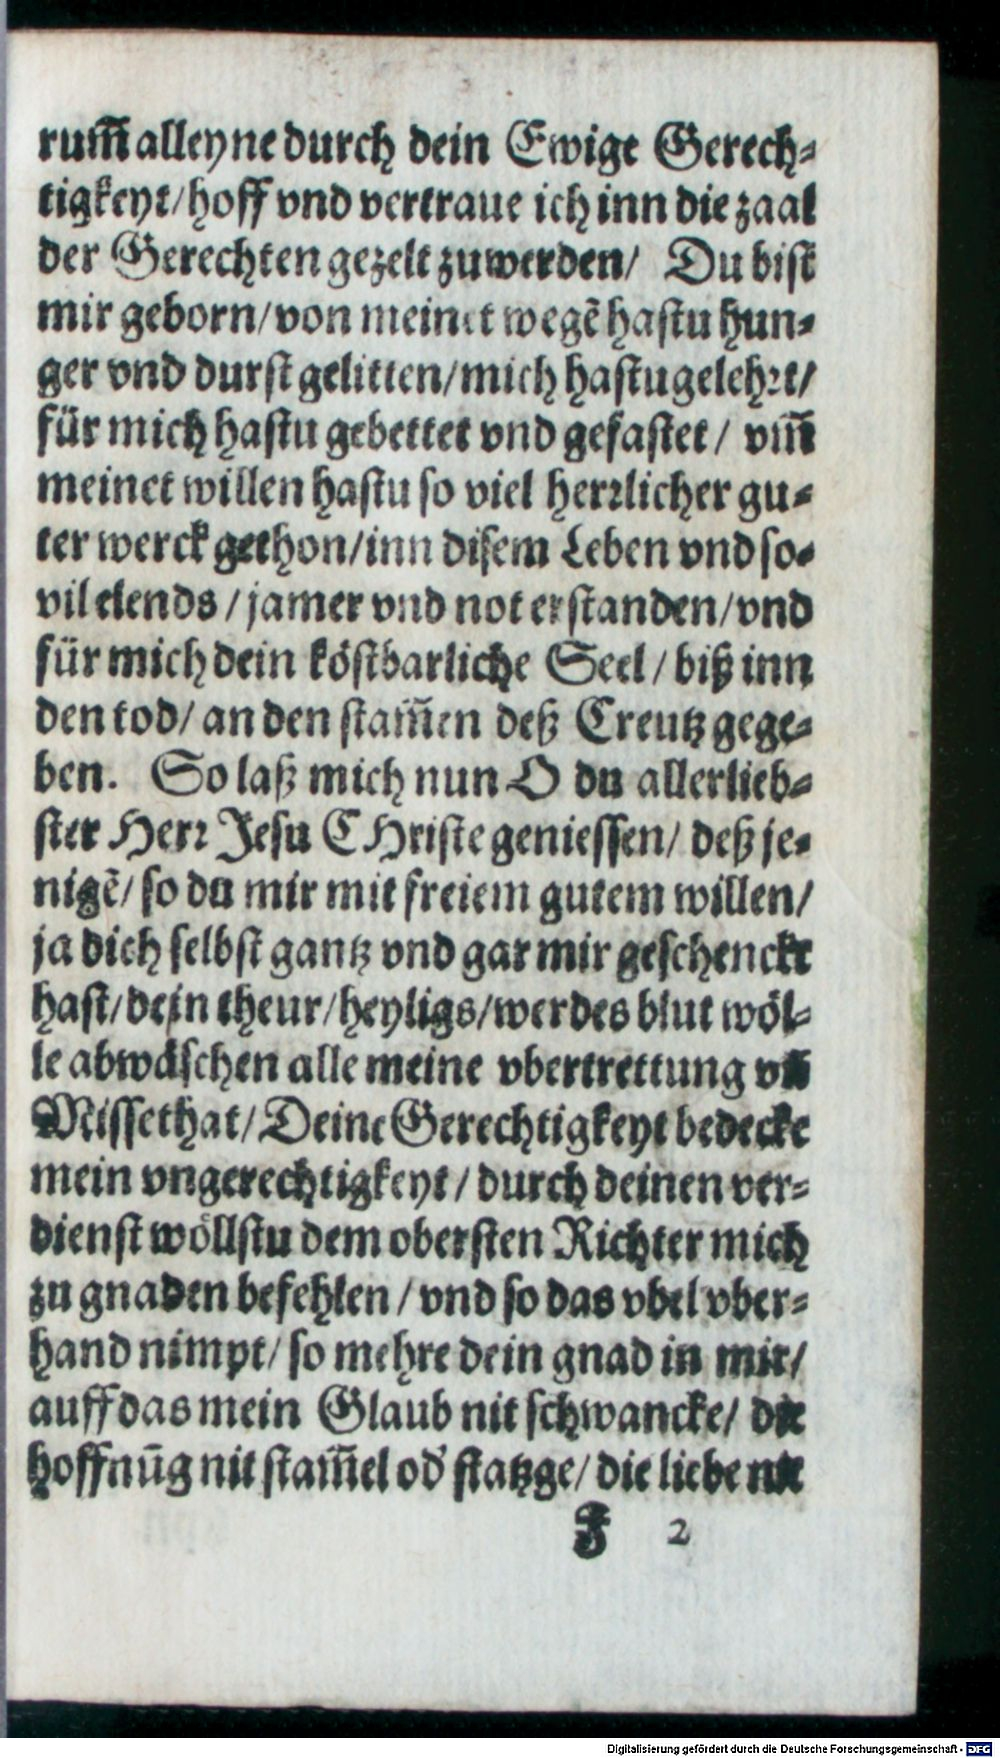 rum̃ alleyne durch dein Ewige Gerech⸗
tigkeyt/ hoff vnd vertraue ich inn die zaal
der Gerechten gezelt zu werden/ Du bist
mir geborn/ von meinet wegẽ hastu hun⸗
ger vnd durst gelitten/ mich hastu gelehꝛt/
für mich hastu gebettet vnd gefastet/ vm̃
meinet willen hastu so viel herꝛlicher gu⸗
ter werck gethon/ inn disem Leben vnd so⸗
vil elends/ jamer vnd not erstanden/ vnd
für mich dein köstbarliche Seel/ biß inn
den tod/ an den stam̃en deß Creutz gege⸗
ben. So laß mich nun O du allerlieb⸗
ster Herꝛ Jesu CHriste geniessen/ deß je⸗
nigẽ/ so du mir mit freiem gutem willen/
ja dich selbst gantz vnd gar mir geschenckt
hast/ dein theur/ heyligs/ werdes blut wöl⸗
le abwäschen alle meine vbertrettung vñ
Missethat/ Deine Gerechtigkeyt bedecke
mein vngerechtigkeyt/ durch deinen ver⸗
dienst wöllstu dem obersten Richter mich
zu gnaden befehlen/ vnd so das vbel vber⸗
hand nimpt/ so mehre dein gnad in mir/
auff das mein Glaub nit schwancke/ die
hoffnũg nit stam̃el od' statzge/ die liebe nit
J 2
Digitalisierung gefördert durch die Deutsche Forschungsgemeinschaft - DFG